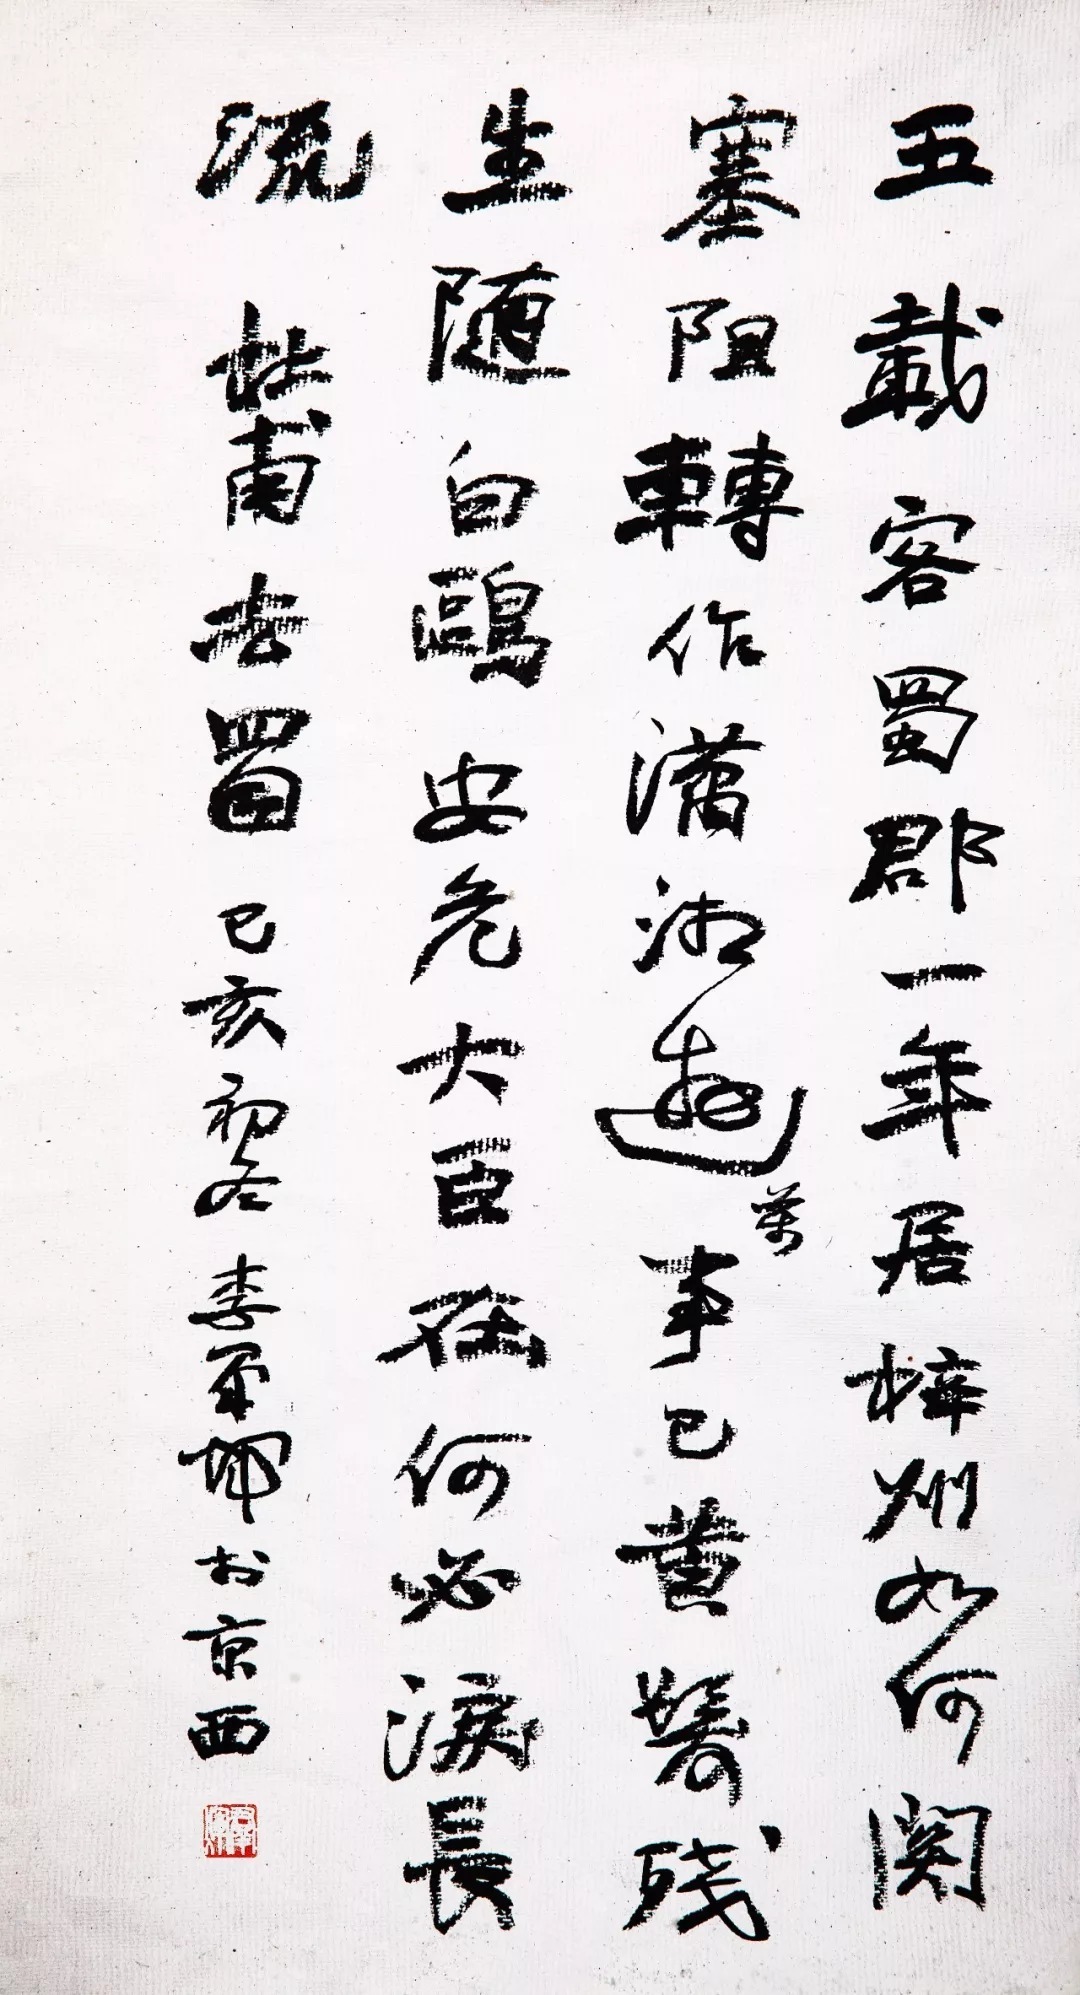 五載客蜀郡一年居梓州如何関
塞阻轉作瀟湘遊萬事已黄髮残
生随白鷗安危大臣在何必淚長
流 杜甫去蜀 己亥初冬 李军坤书京西